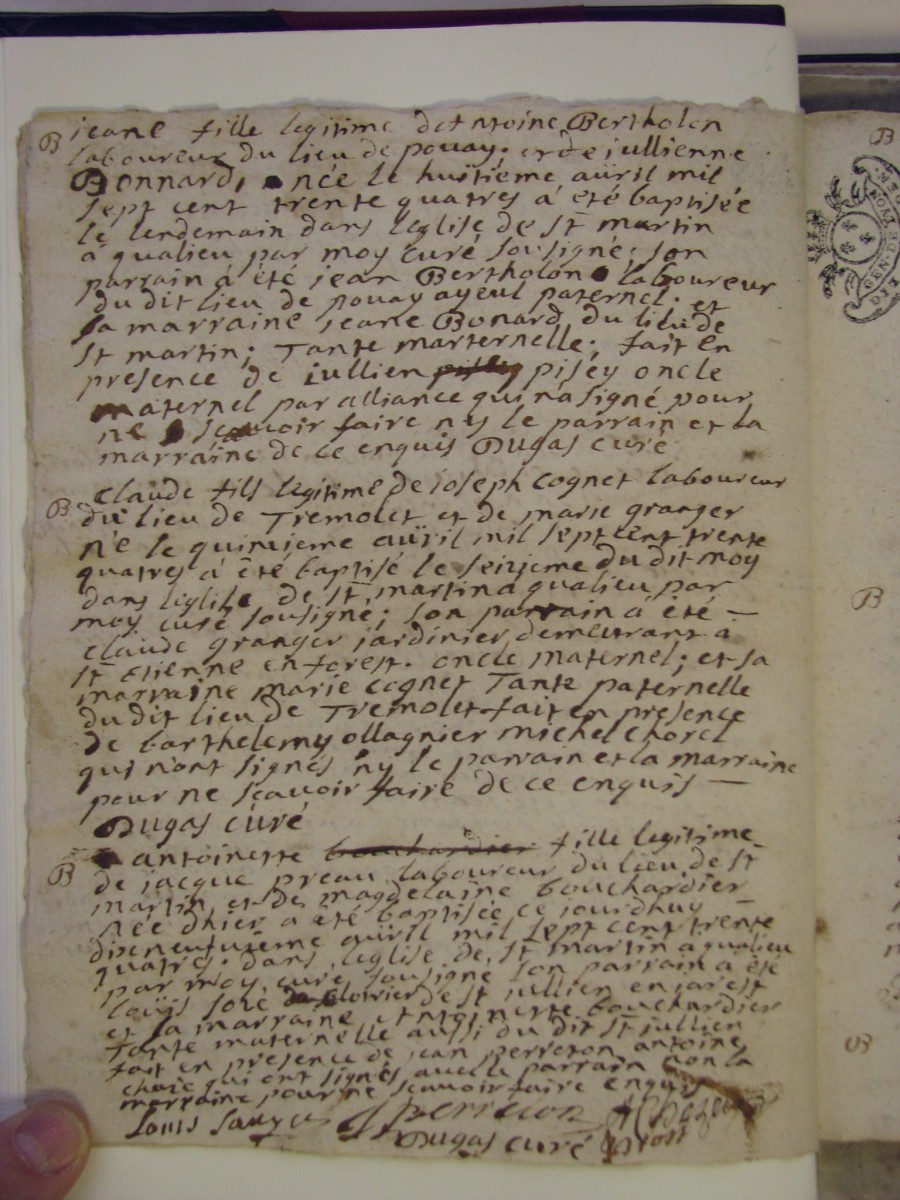 B jeane fille legitime d'Antoine Bertholon
laboureur du lieu de pouay. et de jullienne
Bonnard, née le huitieme auril mil
sept cent trente quatres à été baptisée
le lendemain dans l'eglise de st martin
a qualieu par moy curé sousigné; son
parrain à été jean Bertholon laboureur
du dit lieu de pouay ayeul paternel. et
sa marraine jeane Bonard du lieu de
st martin; Tante marternelle; fait en
presence de jullien pisey oncle
maternel par alliance qui na signé pour
ne scauoir faire nys le parrain et la
marraine de ce enquis Dugas curé
B Claude fils legitime de joseph cognet laboureur
du lieu de Tremolet et de marie granger
né le quinzieme auril mil sept cent trente
quatres à été baptisé le seizieme du dit moy
dans l'eglise de st martin a qualieu par
moy curé sousigné; son parrain à été —
claude granger jardinier demeurant a
st etienne en forest. oncle maternel; et sa
marraine marie cognet Tante paternelle
du dit lieu de Tremolet fait en presence
de barthelemy ollagnier michel chorel
qui n'ont signés ny le parrain et la marraine
pour ne scauoir faire de ce enquis —
Dugas curé
B antoinette bouchardier fille legitime
de jacque preau laboureur du lieu de st
martin et de magdelaine bouchardier
née d'hier a été baptisée ce jourdhuy —
dixneufuieme auril mil sept cent trente
quatres. dans l'eglise de st martin a qualieu
par moy curé sousigné son parrain a été
louis de st jullien en jarest
et la marraine Antoinette bouchardier
tante maternelle aussi du dit st jullien
fait en presence de jean perreton antoine
qui ont signés auec le parrain non la
marraine pour ne scauoir faire enquis
Louis perreton
Dugas curé